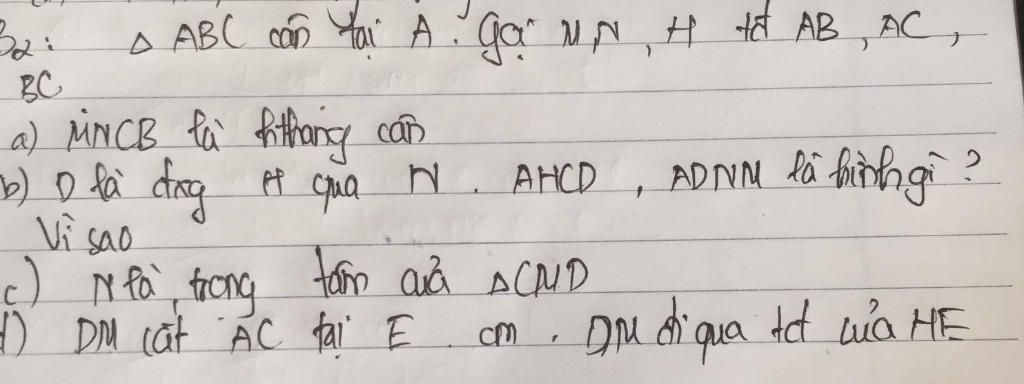 B2: △ ABC cân tại A. Gọi M,N, H tđ AB, AC,
BC
a) MNCB là hthang cân
b) D là đxg H qua N. AHCD, ADNM là hình gì?
Vì sao
c) N là trọng tâm của △CMD
d) DM cắt AC tại E. cm. DM đi qua tđ của HE